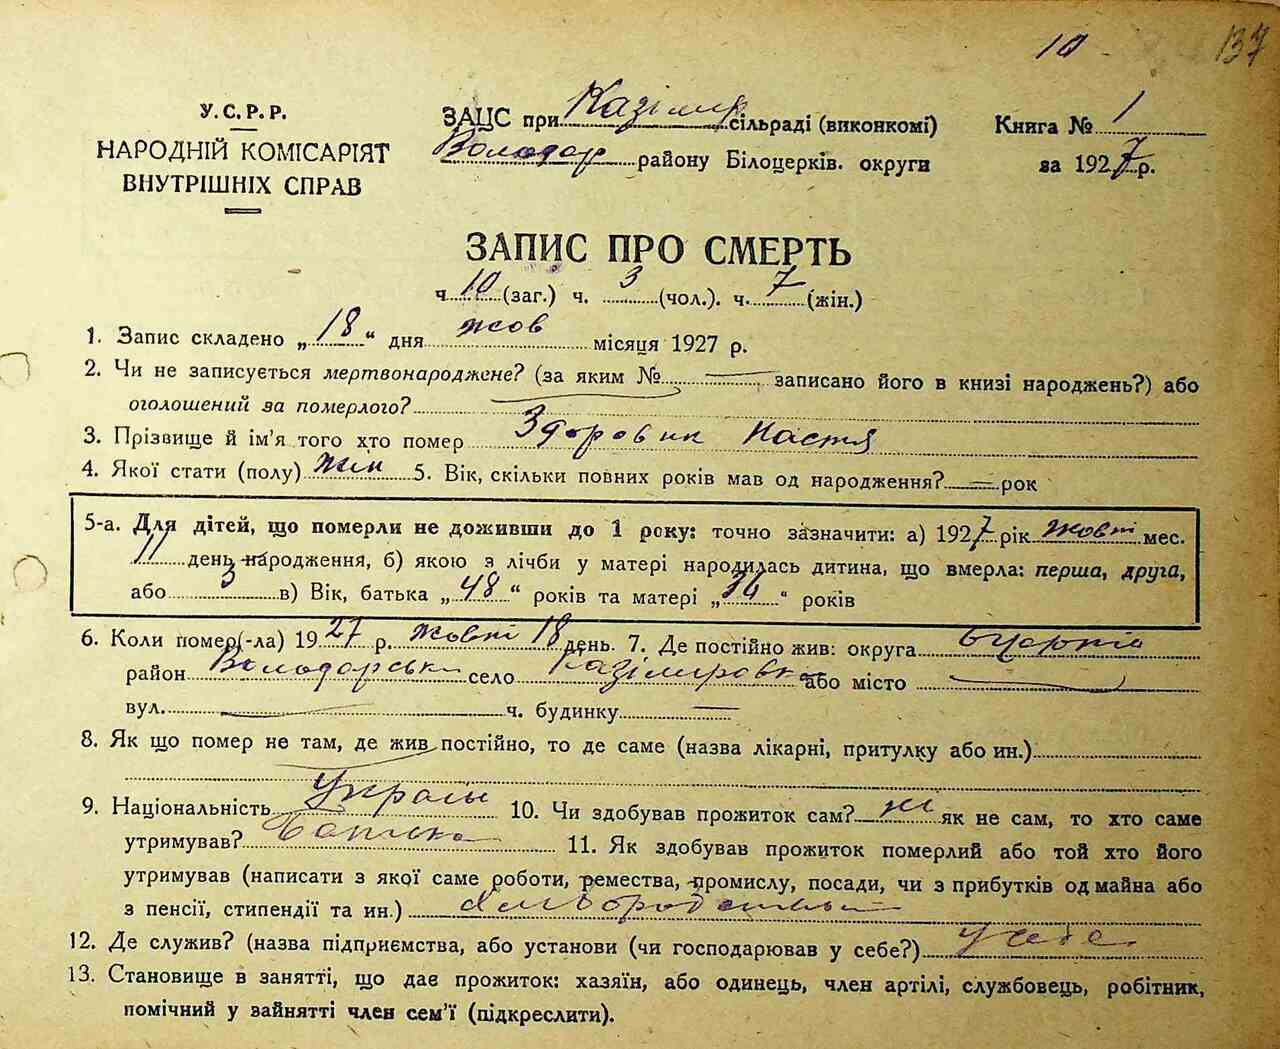 10 137
У.С.Р.Р.
НАРОДНІЙ КОМІСАРІЯТ
ВНУТРІШНІХ СПРАВ
ЗАЦС при Казімир сільраді (виконкомі) Книга № 1
Володар району Білоцерків. округи за 1927 р.
ЗАПИС ПРО СМЕРТЬ
ч 10 (заг.) ч. 3 (чол.). ч. 7 (жін.)
1. Запис складено „18“ дня жов місяця 1927 р.
2. Чи не записується мертвонароджене? (за яким № — записано його в книзі народжень?) або
оголошений за померлого?
3. Прізвище й ім'я того хто помер Здоровик Настя
4. Якої стати (полу) жін 5. Вік, скільки повних років мав од народження? — рок
5-а. Для дітей, що померли не доживши до 1 року: точно зазначити: а) 1927 рік жовт мес.
11 день народження, б) якою з лічби у матері народилась дитина, що вмерла: перша, друга,
або 3 в) Вік, батька „48“ років та матері „34“ років
6. Коли помер(-ла) 1927 р. жовт 18 день. 7. Де постійно жив: округа
район Володарськ село Казіміровка або місто —
вул. — ч. будинку —
8. Як що помер не там, де жив постійно, то де саме (назва лікарні, притулку або ин.)
9. Національність Украін 10. Чи здобував прожиток сам? ні як не сам, то хто саме
утримував? Батько 11. Як здобував прожиток померлий або той хто його
утримував (написати з якої саме роботи, ремества, промислу, посади, чи з прибутків од майна або
з пенсії, стипендії та ин.)
12. Де служив? (назва підприємства, або установи (чи господарював у себе?) у себе
13. Становище в занятті, що дає прожиток: хазяїн, або одинець, член артілі, службовець, робітник,
помічний у вайнятті член сем'ї (підкреслити).